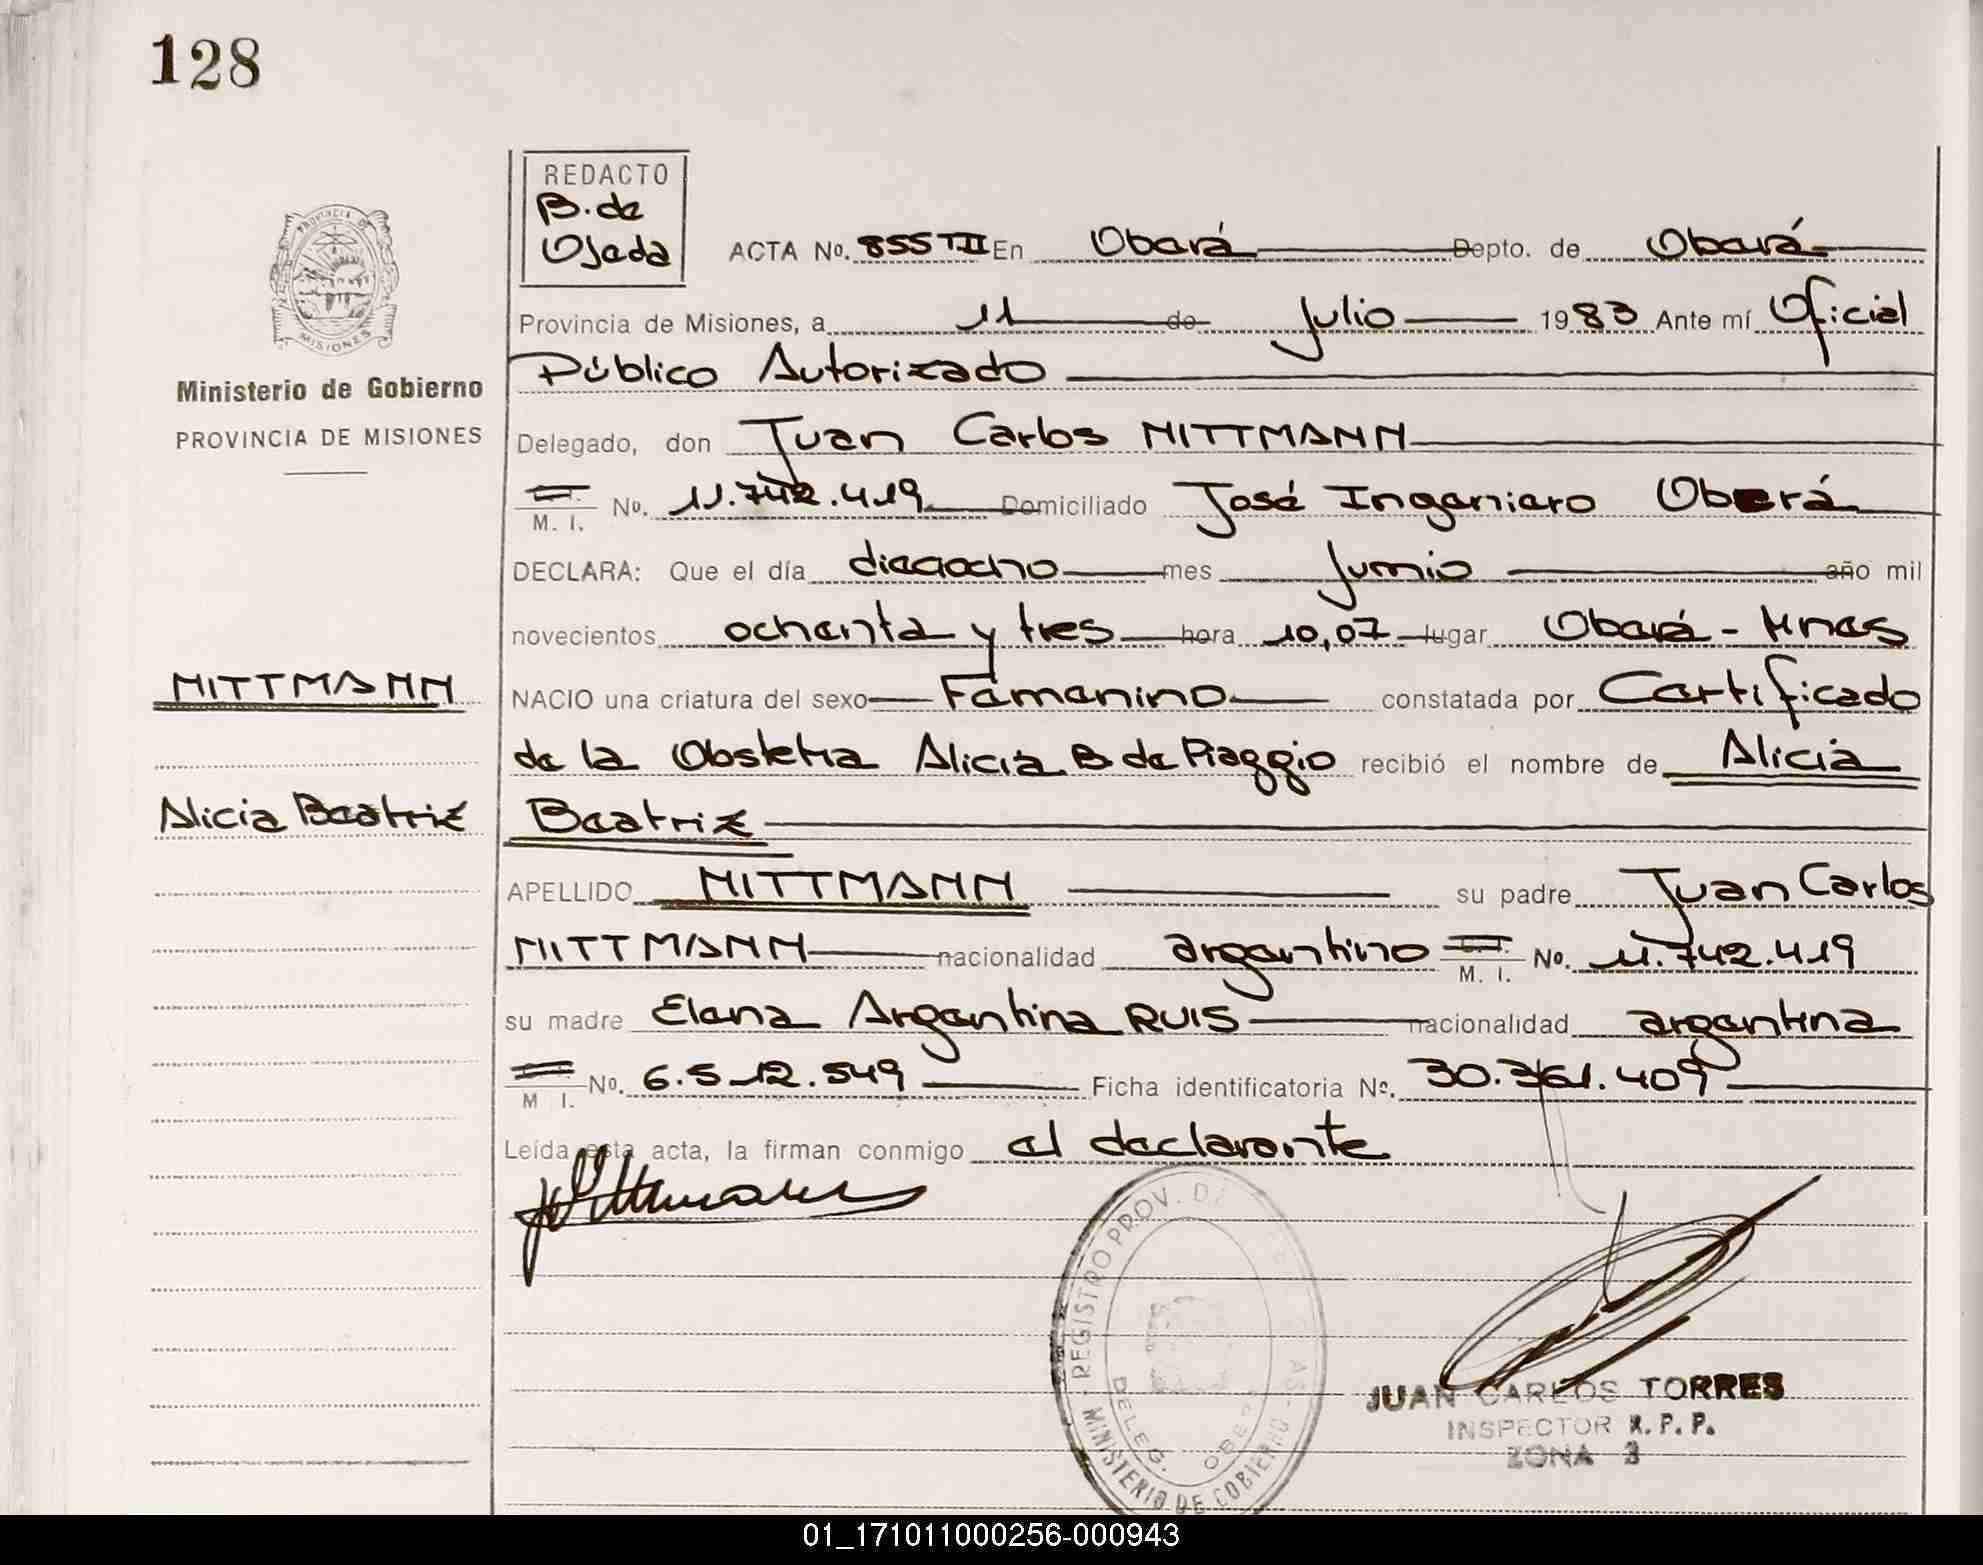 128
REDACTO
B. de
Ojeda
ACTA No. 855 T.II En Oberá Depto. de Oberá
PROVINCIA DE
MISIONES
Provincia de Misiones, a 11 de Julio 1983 Ante mí Oficial
Público Autorizado
Ministerio de Gobierno
PROVINCIA DE MISIONES
Delegado, don Juan Carlos MITTMANN
M. I. No. 11.742.419 Domiciliado José Ingeniero Oberá
DECLARA: Que el día dieciocho mes Junio año mil
novecientos ochenta y tres hora 10,07 lugar Oberá - Mnes
MITTMANN
NACIO una criatura del sexo Femenino constatada por Certificado
de la Obstetra Alicia B de Piaggio recibió el nombre de Alicia
Alicia Beatriz
Beatriz
APELLIDO MITTMANN su padre Juan Carlos
MITTMANN nacionalidad argentino M. I. No. 11.742.419
su madre Elena Argentina RUIS nacionalidad argentina
M I. No. 6.512.549 Ficha identificatoria No. 30.361.409
Leída esta acta, la firman conmigo el declarante
REGISTRO PROV. DE
MINISTERIO DE GOBIERNO
DELEG. OBERA
JUAN CARLOS TORRES
INSPECTOR R. P. P.
ZONA 3
01_171011000256-000943